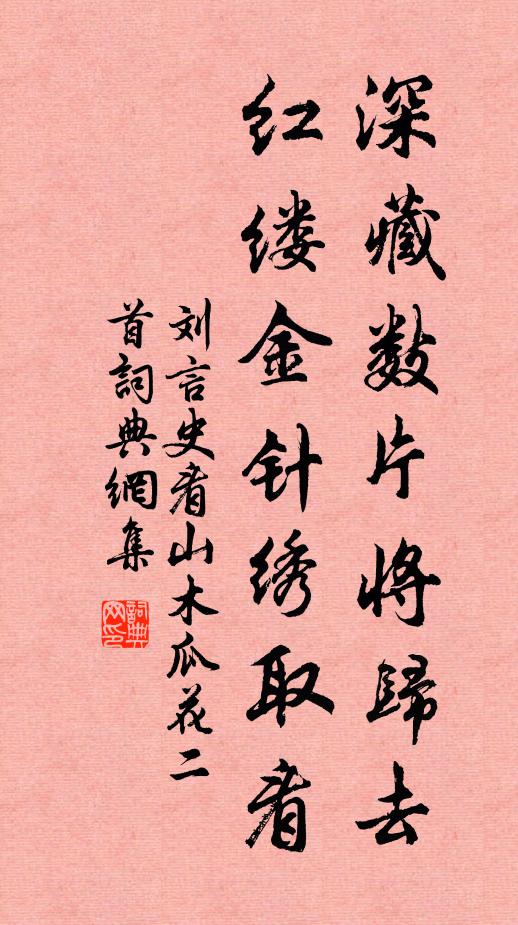 深藏数片将歸去
红缕金针绣取看
刘言史看山木瓜花二
首詞典網集
詞典
网印